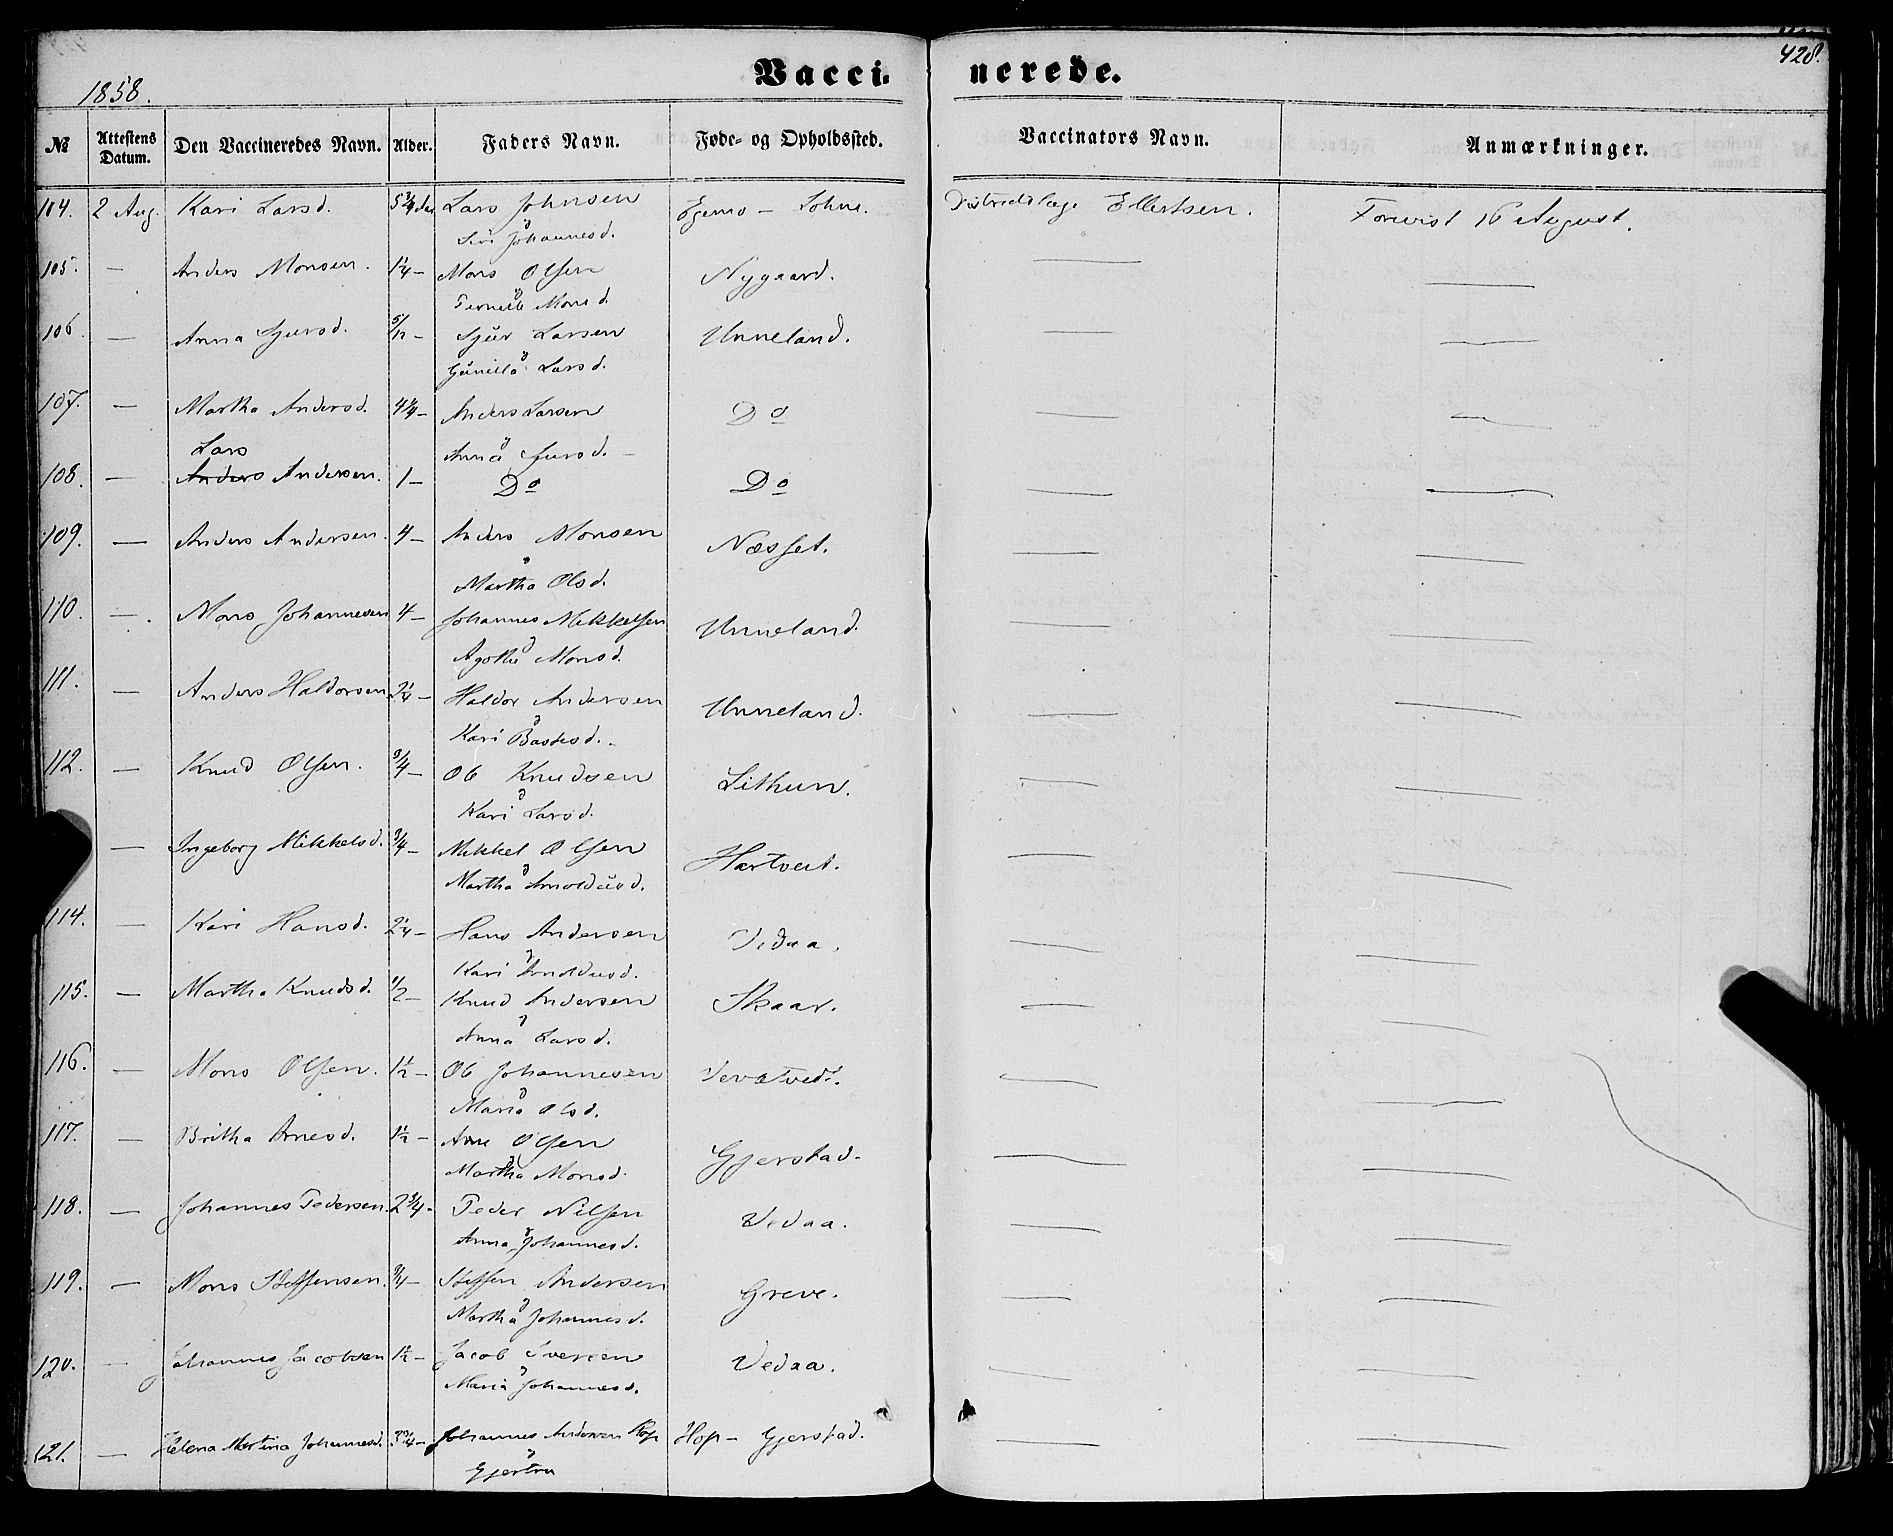 1858.
Vaccinerede.
428.
№ Attestens Datum. Den Vaccineredes Navn. Alder. Faders Navn. Føde- og Opholdssted. Vaccinators Navn. Anmærkninger.
104. 2 Aug. Kari Larsd. 5 3/4 Lars Johnsen Lohne. Ellertsen. 16 August.
Johannesd.
105. — Anders Monsen. 1 1/4 — Mons Olsen Nygaard. — —
Monsd.
106. — Anna Sjursd. 5/12 — Sjur Larsen Unneland. — —
Larsd.
107. — Martha Andersd. 4 — Anders Larsen Do — —
Lars Anna Sjursd. —
108. — Anders Andersen. 1 — Do Do — —
109. — Anders Andersen. 4 — Anders Monsen Næsset. — —
Martha Olsd.
110. — Mons Johannesen 4 — Johannes Mikkelsen Unneland. — —
Agothe Monsd.
111. — Anders Haldorsen 2 1/4 — Haldor Andersen Unneland. — —
Kari
112. — Knud Olsen. 3/4 — Ole Knudsen Lithun. — —
Kari Larsd.
— Ingeborg Mikkelsd. 3/4 — Mikkel Olsen Hartveit. — —
Martha Arnoldusd.
114. — Kari Hansd. 2 1/4 — Hans Andersen Vedaa. — —
Kari Arnoldusd.
115. — Martha Knudsd. 1/2 — Knud Andersen Skaar. — —
Anna Larsd.
116. — Mons Olsen. 1 1/2 — Ole Johannesen — —
Maria Olsd.
117. — Britha Arnesd. 1 1/2 — Arne Olsen Gjerstad. — —
Martha Monsd.
118. — Johannes Pedersen. 2 3/4 — Peder Nilsen Vedaa. — —
Anna Johannesd.
119. — Mons Steffensen. 3/4 — Steffen Andersen Greve. — —
Martha Johannesd.
120. — Johannes Jacobsen 1 1/2 — Jacob Iversen Vedaa. — —
Maria Johannesd.
121. — Helena Martina Johannesd. 3 3/4 — Johannes Andersen Hop — Gjerstad. — —
Gjertru